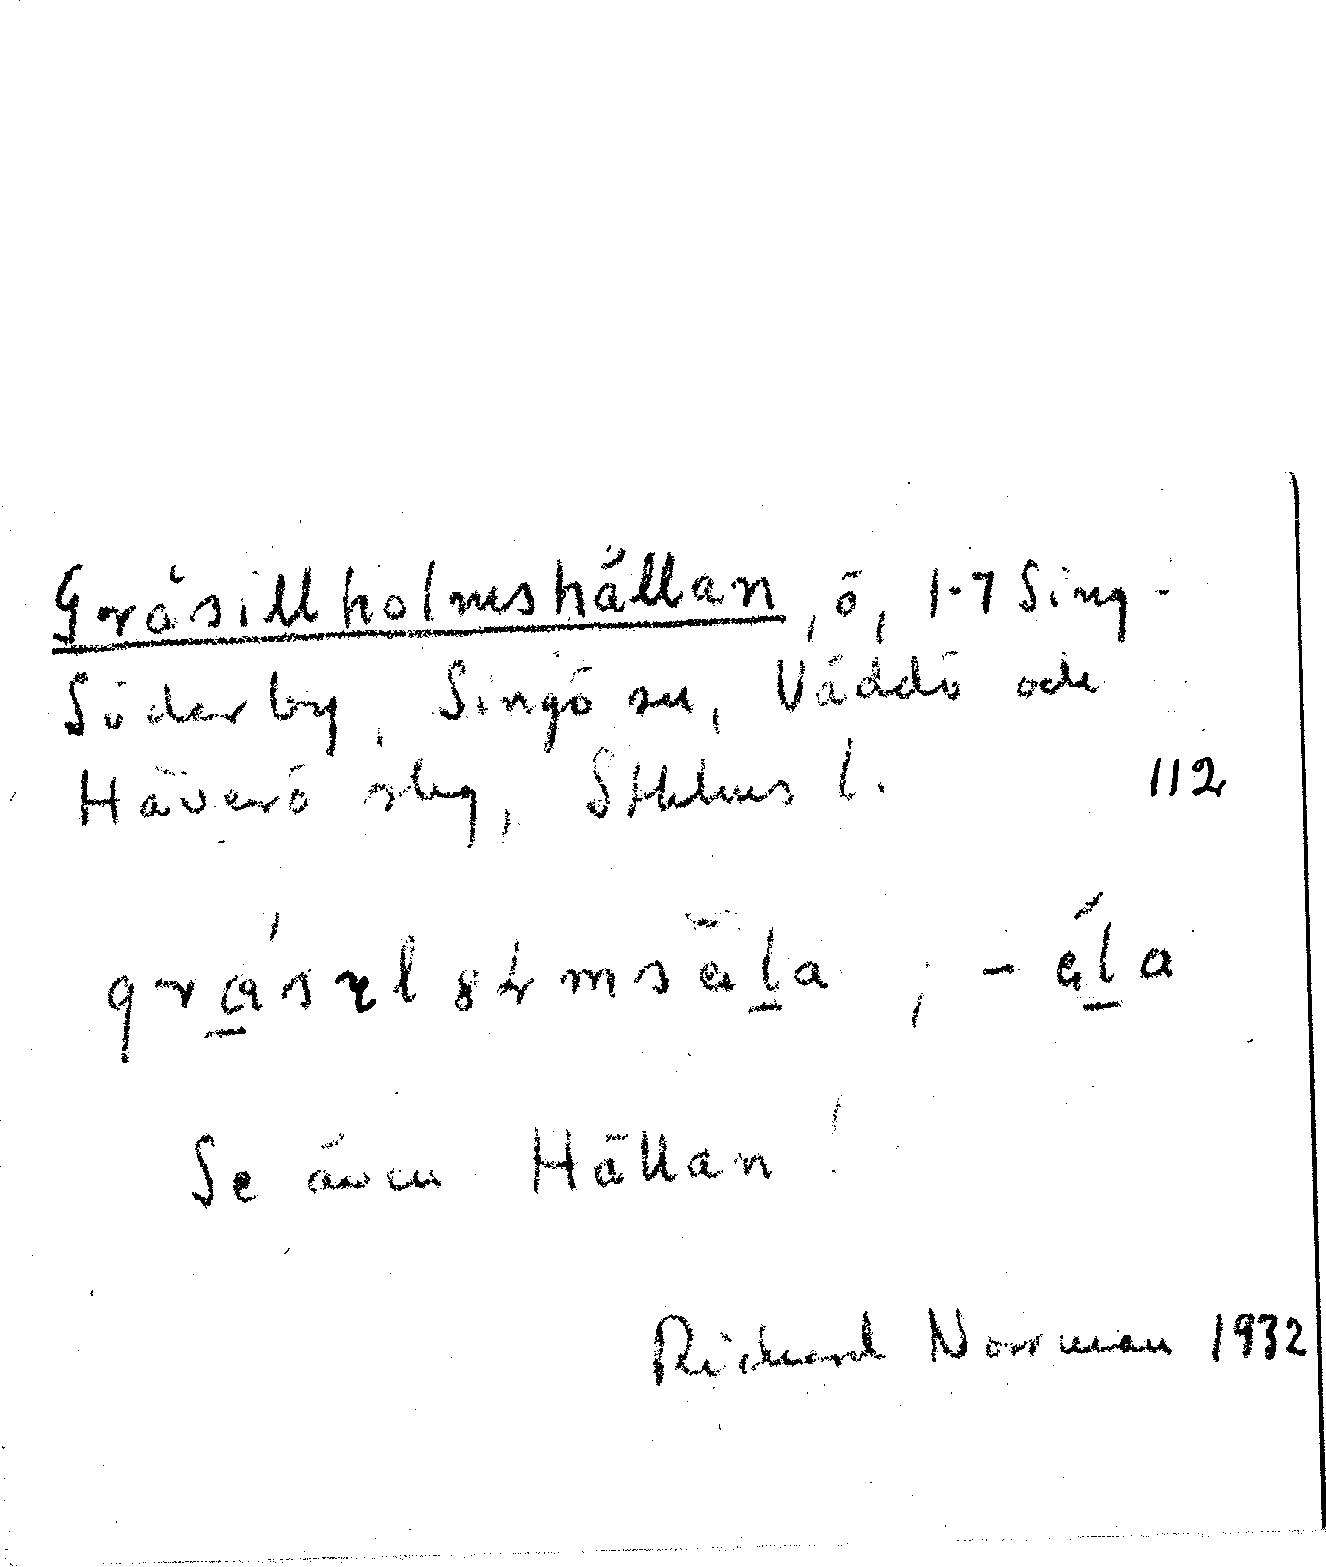 Gråsillholmshällan, ö, 1-7 Sing-
Söderby, Singö sn, Väddö och
Häverö slg, Sthlms l. 112
Se även Hällan!
Richard Norrman 1932